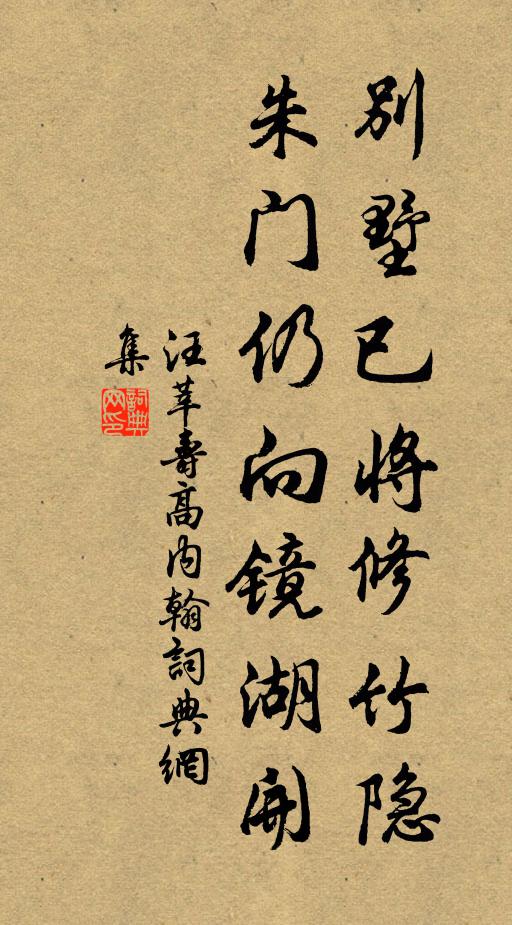 别墅已将修竹隐
朱门仍向镜湖开
汪莘寿高内翰詞典網
集
詞典网印